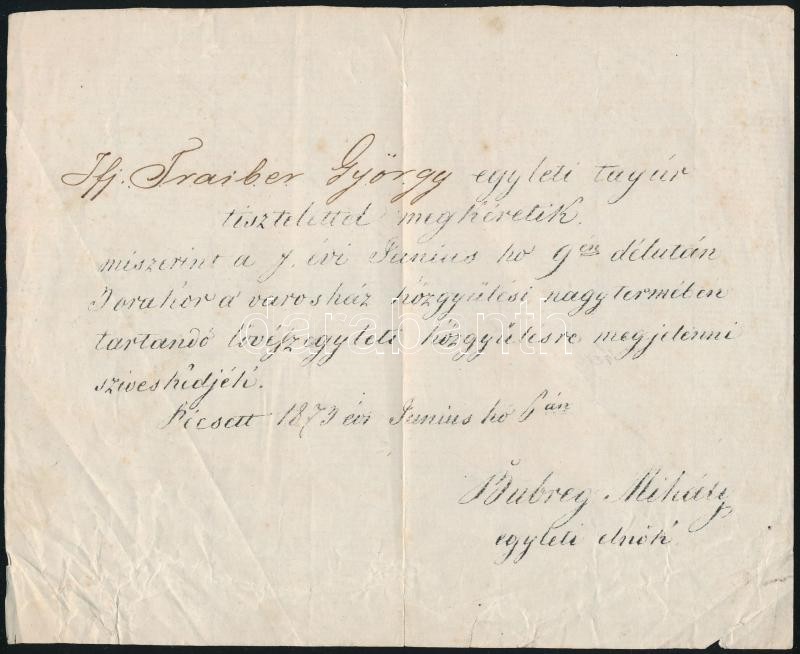 Ifj. Traiber György egyleti tag úr
tisztelettel megkéretik.
miszerint a f. évi Junius hó 9én délután
3 orakor a városház közgyülési nagytermében
tartandó lövészegyleti közgyülésre megjelenni
sziveskedjék.
Pécsett 1873 évi Junius hó 6án
Bubreg Mihály
egyleti elnök.
darabanth